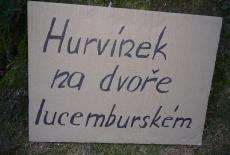 Hurvínek
na dvoře
lucemburském